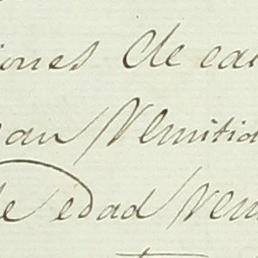 iones de ca
ean Remitid
de edad Rem